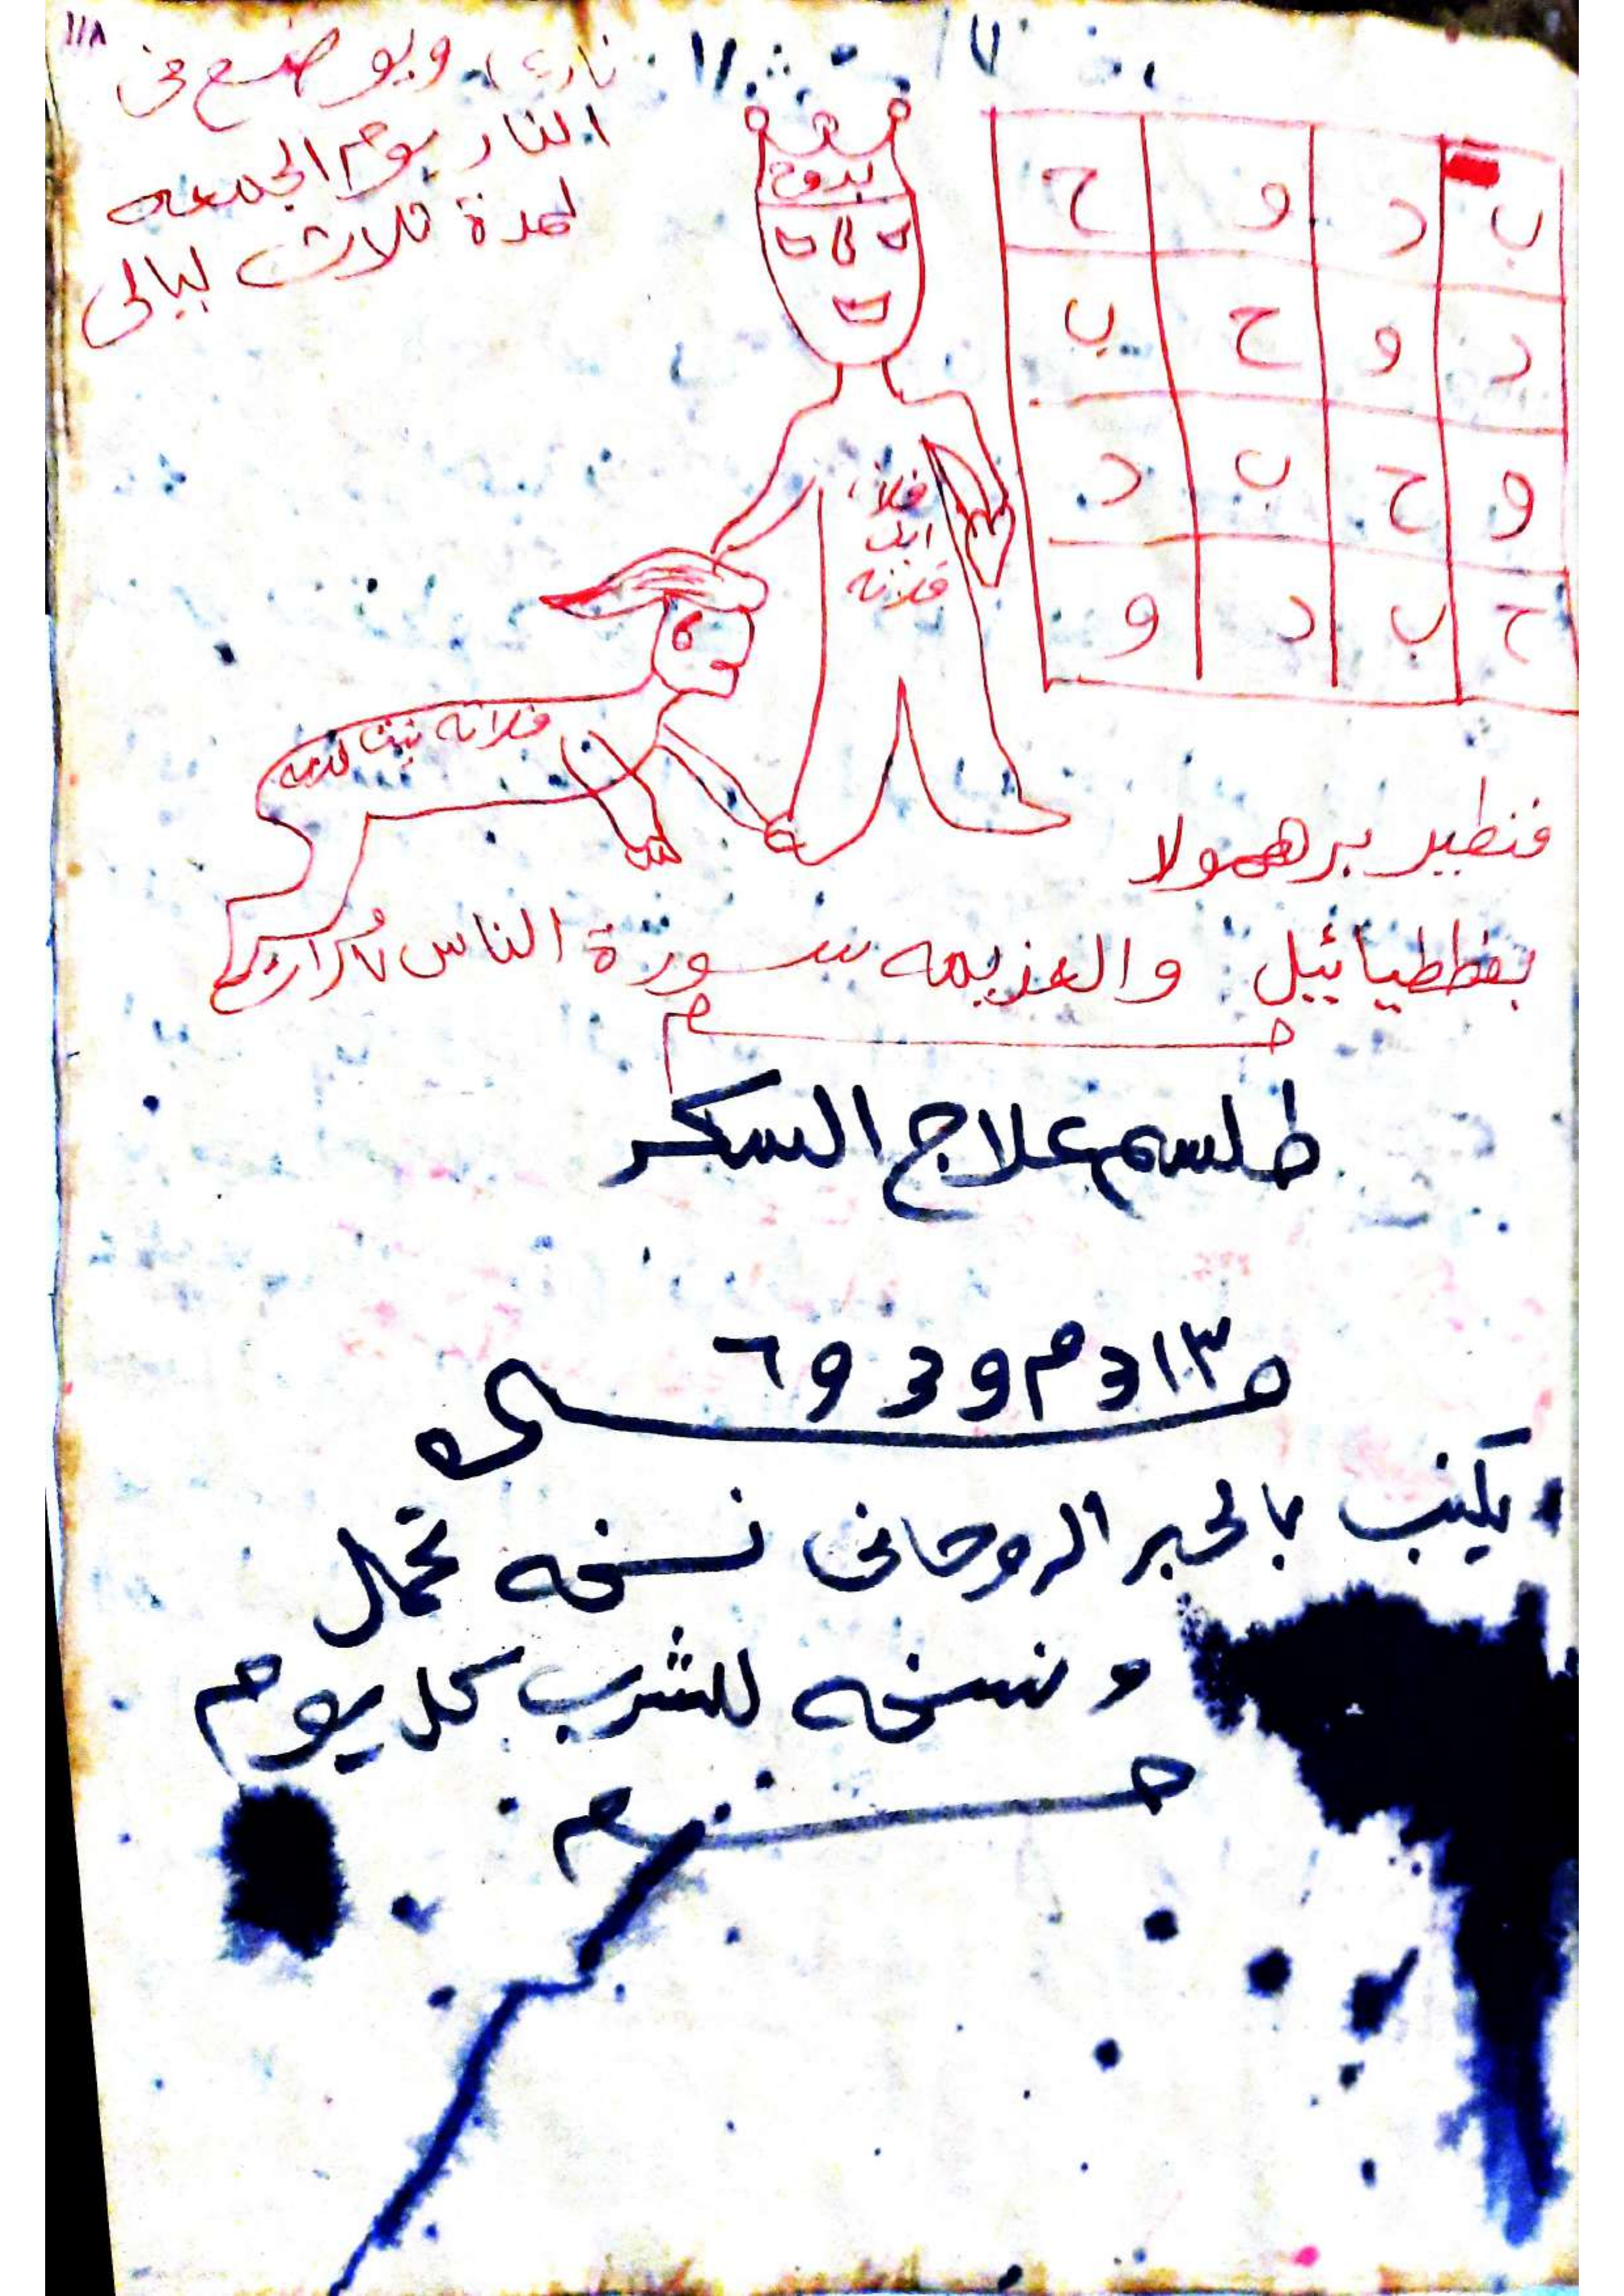 ١١٨
ويوضع فى
النار يوم الجمعه
لمدة ثلاث ليالى
بدوح
ب د و ح
د و ح ب
و ح ب د
ح ب د و
فلان
ابن
فلانه
فلانه بنت فلانه
فنطير برهمولا
بفططيائيل والعزيمه سورة الناس
طلسم علاج السكر
يكتب بالحبر الروحانى نسخه تحمل
و نسخه للشرب كل يوم